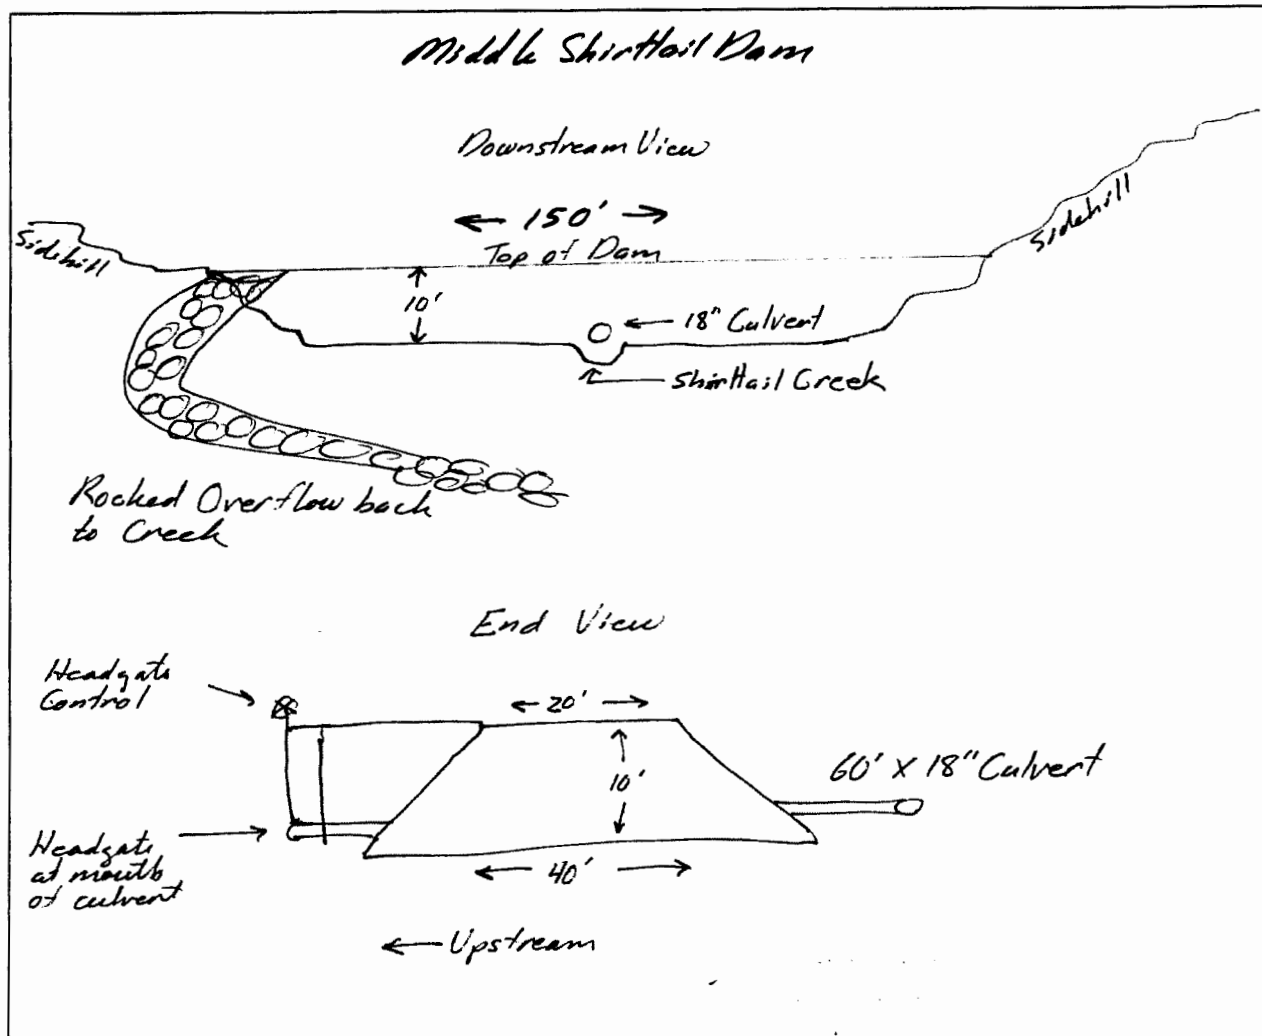 Middle Shirttail Dam
Downstream View
← 150' →
Top of Dam
Sidehill
Sidehill
10'
← 18" Culvert
Shirttail Creek
Rocked Overflow back
to Creek
End View
Headgate
Control
← 20' →
10'
60' X 18" Culvert
Headgate
at mouth
of culvert
← 40' →
← Upstream